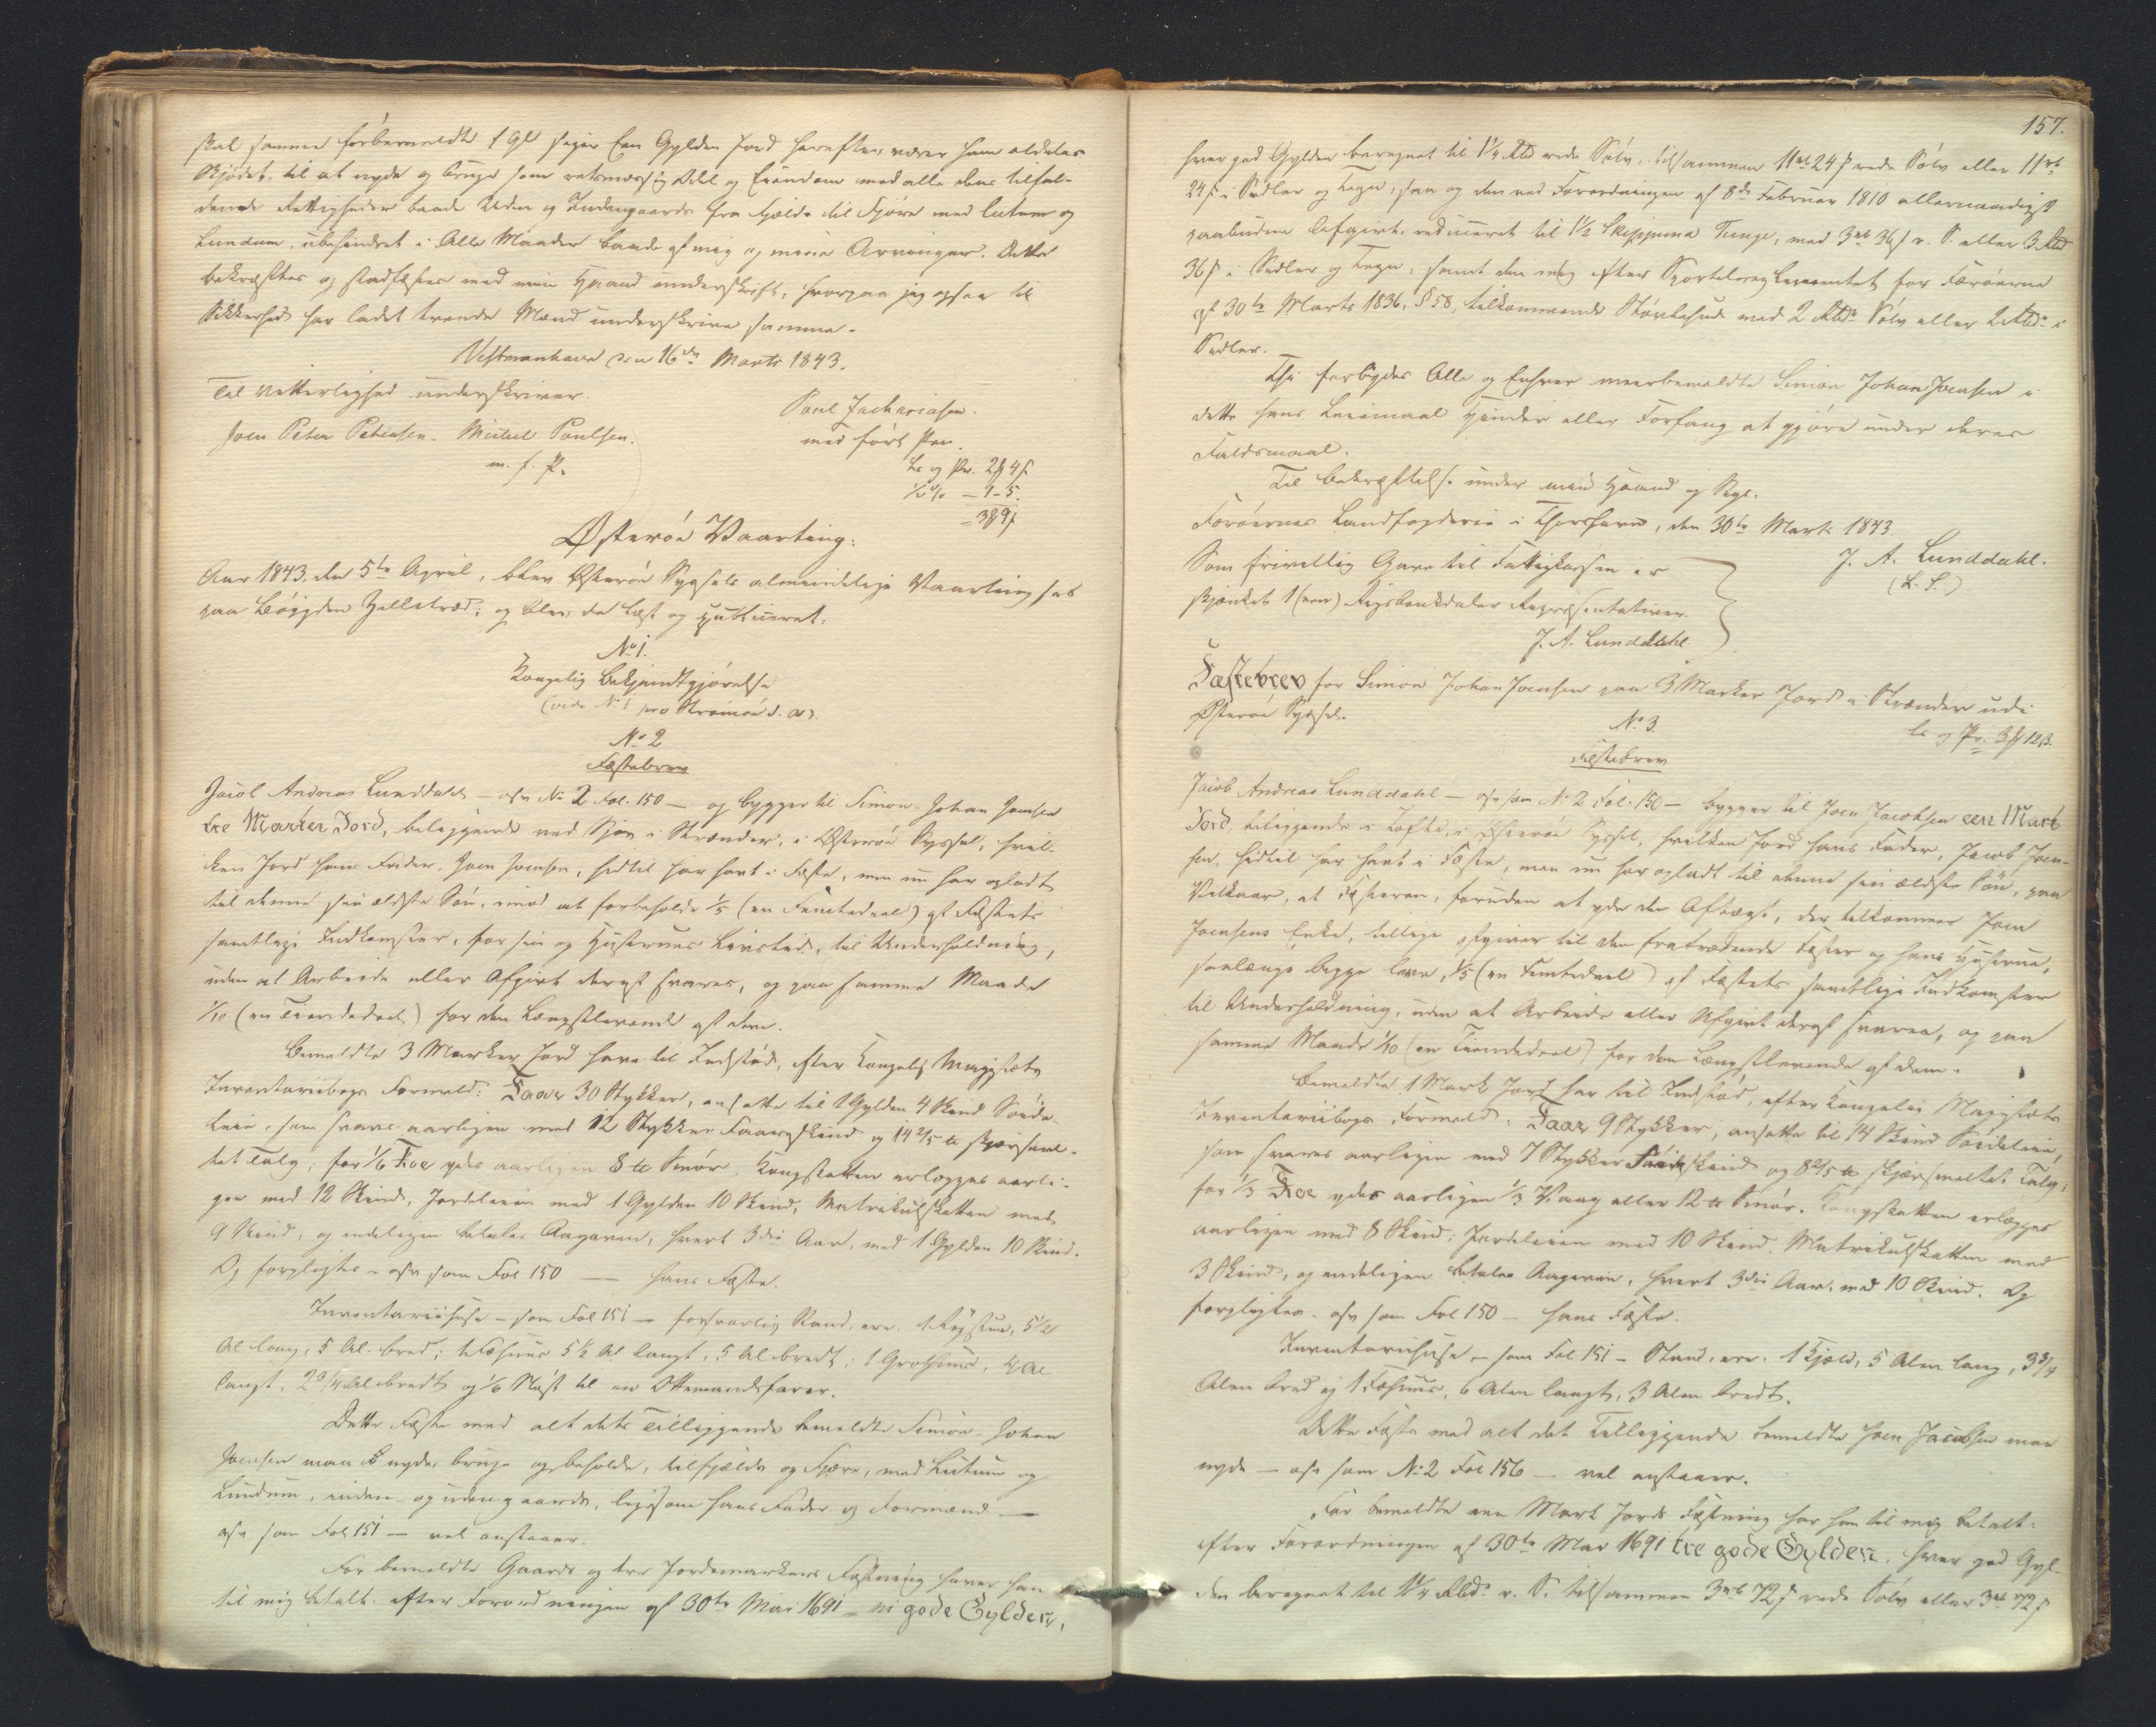 skal samme forbemeldte 1 Gl siger Een Gylden Jord herefter være ham aldeles
Skjødet, til at nyde og bruge som retmæssig Odel og Eiendom med alle dens tilfal-
dende Rettigheder baade Uden og Indengaards fra Fjelde til Fjøre med lutum og
Lundum, ubehindret i Alle Maader baade af mig og mine Arvinger. Dette
bekræftes og stadfæstes med min Haand underskrift, hvorpaa jeg ogsaa til
Sikkerhed har ladet tvende Mænd underskrive samme.
Vestmanhavn den 16de Marts 1843.
Til Vitterlighed underskriver
Poul Zachariasen.
Joen Peter Petersen. Michel Poulsen.
med ført Pen.
m. f. P.
Ls og Pr. 2 4 s
½ % — 1-5.
= 3 9 s
Østerøe Vaarting:
Aar 1843, den 5te April, blev Østerøe Syssels almindelige Vaarting sat
paa Bøygden Zelletræd; og blev da læst og publiceret:
No 1.
Kongelig Bekjendtgjørelse
(vide No 1 pro Strømøe d. A.).
No 2
Fæstebrev
Jacob Andreas Lunddahl — osv No 2 Fol. 150 — og bygger til Simon Johan Joensen
tre Marker Jord, beliggende ved Sjov i Strænder, i Østerøe Syssel, hvil-
ken Jord hans Fader, Joen Joensen, hidtil har havt i Fæste, men nu har opladt
til denne sin ældste Søn, imod at forbeholde 1/5 (en Femtedeel) af Fæstets
samtlige Indkomster, for sin og Hustrues Livstid, til Underholdning,
uden at Arbeide eller Afgivt deraf svares, og paa samme Maade
1/10 (en Tiendedeel) for den Længstlevende af dem.
Bemeldte 3 Marker Jord have til Indstød, efter Kongelig Majestæts
Inventariibogs Formeld: Faar 30 Stykker, ansatte til 1 Gylden 4 Skind Søide-
leie, som svares aarligen med 12 Stykker Faareskind og 14 2/5 ℔ skjærsmel-
tet Talg; for 1/6 Koe ydes aarligen 8 ℔ Smør. Kongskatten erlægges aarli-
gen med 12 Skind, Jordeleien med 1 Gylden 10 Skind; Matrikulskatten med
9 Skind, og endeligen betales Aagaven, hvert 3die Aar, med 1 Gylden 10 Skind.
Og forpligtes — osv som Fol 150 — hans Fæste.
Inventariihuse — som Fol 151 — forsvarlig Stand, ere: 1 Røgstue, 5½
Al lang, 5 Al. bred; 1 Fæhuus 5½ Al langt, 5 Al bredt; 1 Grothuus, 4 Al
langt, 2 3/4 Al bredt og 1/6 Nøst til en Ottemandsfarer.
Dette Fæste med alt dets Tilliggende bemeldte Simon Johan
Joensen maae nyde, bruge og beholde, til Fjælds og Fjære, med Lutum og
Lundum, inden- og udengaards, ligesom hans Fader og Formænd —
osv som Fol 151 — vel anstaaer.
For bemeldte Gaards og tre Jordemarkers Fæstning haver han
til mig betalt efter Forordningen af 30te Mai 1691 — ni gode Gylden,
157.
hver god Gylden beregnet til 1¼ Rbd rede Sølv, tilsammen 11 rb 24 s rede Sølv eller 11 rb
24 s i Sedler og Tegn, saa og den ved Forordningen af 8de Februar 1810 allernaadigst
paabudne Afgivt, reduceret til 1½ Skippund Tunge, med 3 rb 36 s r. S. eller 3 Rbd
36 s i Sedler og Tegn, samt den mig efter Sportelreglementet for Færøerne
af 30te Marts 1836, § 58, tilkommende Størbehud med 2 Rbd Sølv eller 2 Rbd i
Sedler.
Thi forbydes Alle og Enhver meerbemeldte Simon Johan Joensen i
dette hans Leiemaal Hinder eller Forfang at gjøre under deres
Faldsmaal.
Til Bekræftelse under min Haand og Segl.
Færøernes Landfogderie i Thorshavn, den 30te Marts 1843.
J. A. Lunddahl.
(L. S.)
Som frivillig Gave til Fattigkassen er
skjænket 1 (een) Rigsbankdaler Repræsentativer.
J. A. Lunddahl
Fæstebrev for Simon Johan Joensen paa 3 Marker Jord i Strænder udi
Østerøe Syssel.
Ls og Pr. 3 12 s.
No 3.
Fæstebrev
Jacob Andreas Lunddahl — osv som No 2 Fol. 150 — bygger til Joen Jacobsen een Mark
Jord, beliggende i Tofte, i Østerøe Syssel, hvilken Jord hans Fader, Jacob Joen-
sen, hidtil har havt i Fæste, men nu har opladt til denne sin ældste Søn, paa
Vilkaar, at Fæsteren, foruden at yde den Aftægt, der tilkommer Joen
Joensens Enke, tillige afgiver til den fratrædende Fæster og hans Hustrue,
saalænge begge leve, 1/5 (en Femtedeel) af Fæstets samtlige Indkomster
til Underholdning, uden at Arbeide eller Afgivt deraf svares, og paa
samme Maade 1/10 (en Tiendedeel) for den Længstlevende af dem.
Bemeldte 1 Mark Jord har til Indstød, efter Kongelig Majestæts
Inventariibogs Formeld: Faar 9 Stykker, ansatte til 14 Skind Søideleie,
som svares aarligen med 7 Stykker Faareskind og 8 2/5 ℔ skjærsmeltet Talg;
for 1/3 Koe ydes aarligen 1/3 Vaag eller 12 ℔ Smør. Kongskatten erlægges
aarligen med 8 Skind; Jordeleien med 10 Skind. Matrikulskatten med
3 Skind, og endeligen betales Aagaven, hvert 3die Aar, med 10 Skind. Og
forpligtes — osv som Fol 150 — hans Fæste.
Inventariihuse — som Fol 151 — Stand, ere: 1 Hjeld, 5 Alen lang, 3 3/4
Alen bred og 1 Fæhuus, 6 Alen langt, 3 Alen bredt.
Dette Fæste med alt det Tilliggende bemeldte Joen Jacobsen maae
nyde — osv som No 2 Fol 156 — vel anstaaer.
For bemeldte een Mark Jords Fæstning har han til mig betalt
efter Forordningen af 30te Mai 1691 tre gode Gylden, hver god Gyl-
den beregnet til 1¼ Rbd r. S. tilsammen 3 rb 72 s rede Sølv eller 3 rb 72 s